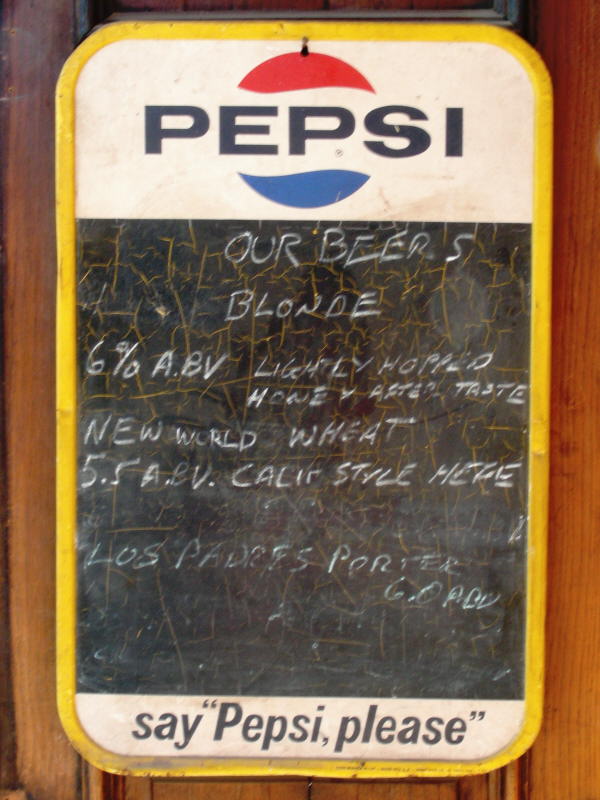 PEPSI
OUR BEERS
BLONDE
6% A.BV LIGHTLY HOPPED
HONEY AFTER TASTE
NEW WORLD WHEAT
5.5 A.BV. CALIF STYLE HEFE
LOS PADRES PORTER
6.0 ABV
say "Pepsi, please"